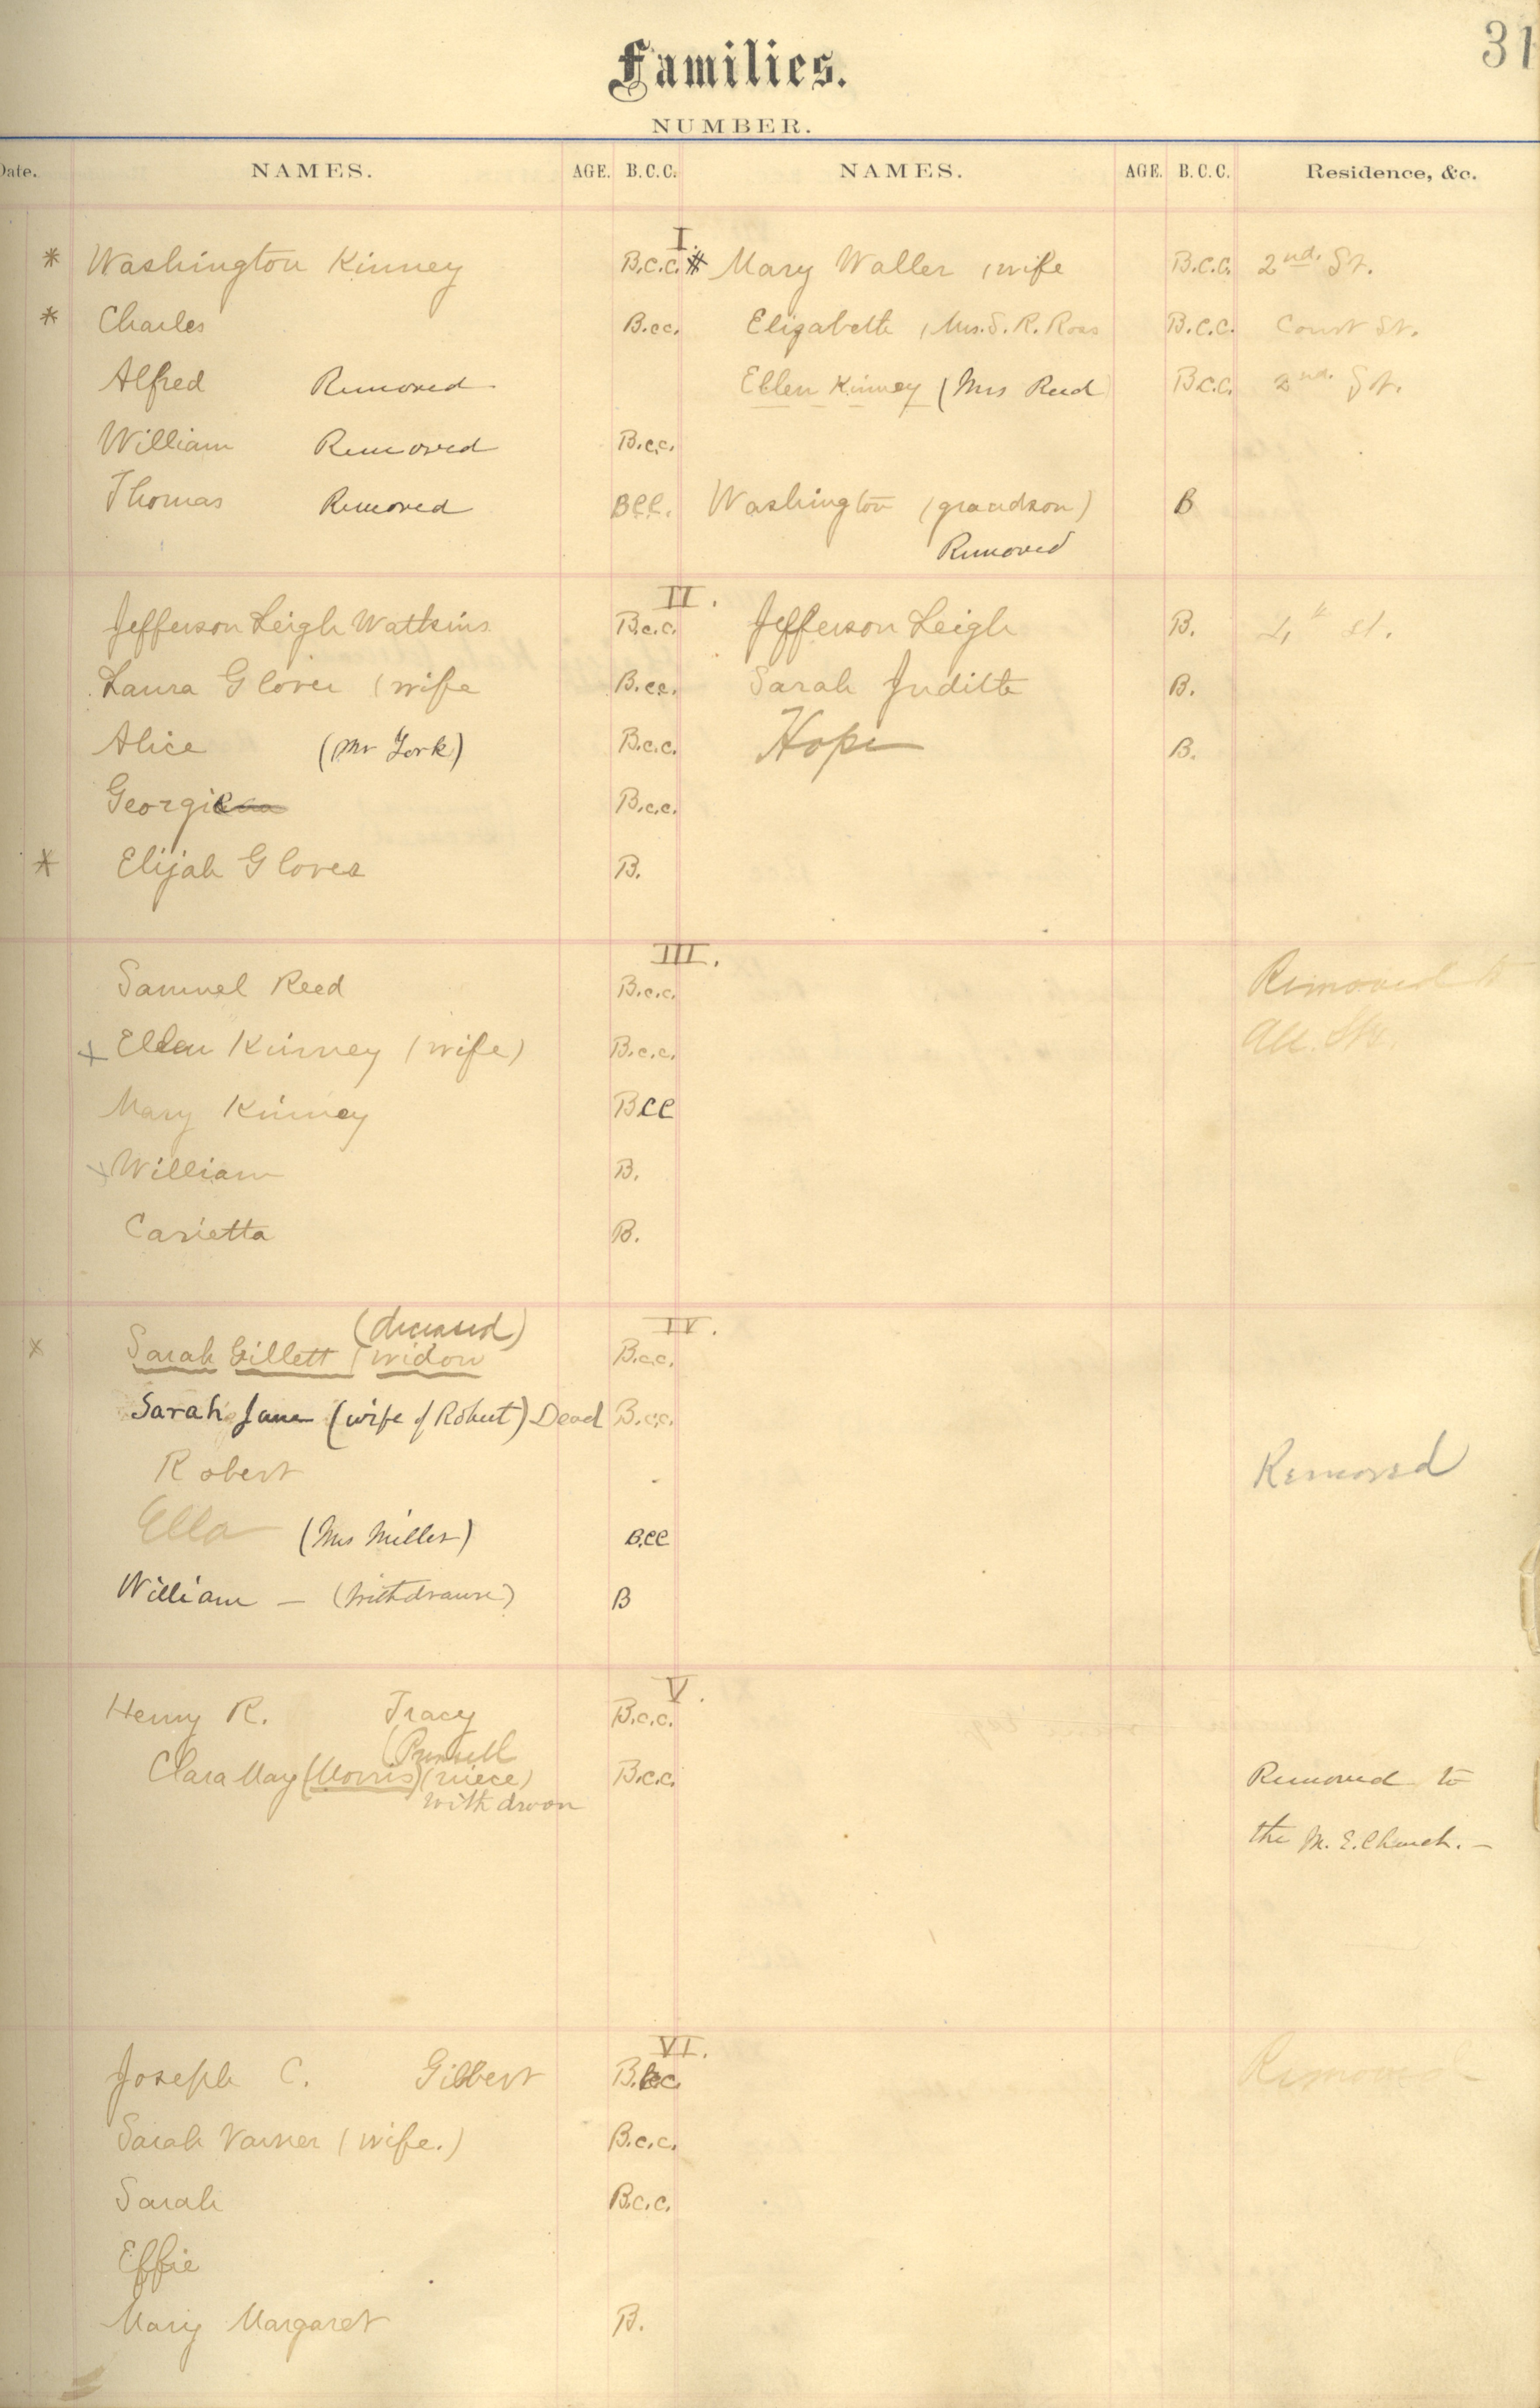 31
Families.
NUMBER.
Date. NAMES. AGE. B.C.C. NAMES. AGE. B.C.C. Residence, &c.
I.
* Washington Kinney B.C.C. * Mary Waller (wife B.C.C. 2nd. St.
* Charles B.cc. Elizabeth (Mrs. S. R. Ross B.C.C. Court St.
Alfred Removed Ellen Kinney (Mrs Reed B.C.C. 2nd. St.
William Removed B.c.c.
Thomas Removed B.C.C. Washington (grandson) B
Removed
II.
Jefferson Leigh Watkins B.c.c. Jefferson Leigh B. 4th st.
Laura Glover (wife B.cc. Sarah Judith B.
Alice (Mr York) B.c.c. Hope B.
Georgie B.c.c.
* Elijah Glover B.
III.
Samuel Reed B.c.c. Removed to
x Ellen Kinney (wife) B.c.c.
Mary Kinney BCC
x William B.
Carietta B.
IV.
(deceased)
x Sarah Gillett (widow B.c.c.
Sarah Jane (wife of Robert) Dead B.cc.
Robert Removed
Ella (Mrs Miller) B.CC
William - (Withdrawn) B
V.
Henry R. Tracy B.c.c.
Clara May (Morris) (niece) B.c.c. Removed to
withdrawn
the M. E. Church. -
VI.
Joseph C. Gilbert B.c.c. Removed
Sarah Varner (wife.) B.c.c.
Sarah B.c.c.
Effie
Mary Margaret B.